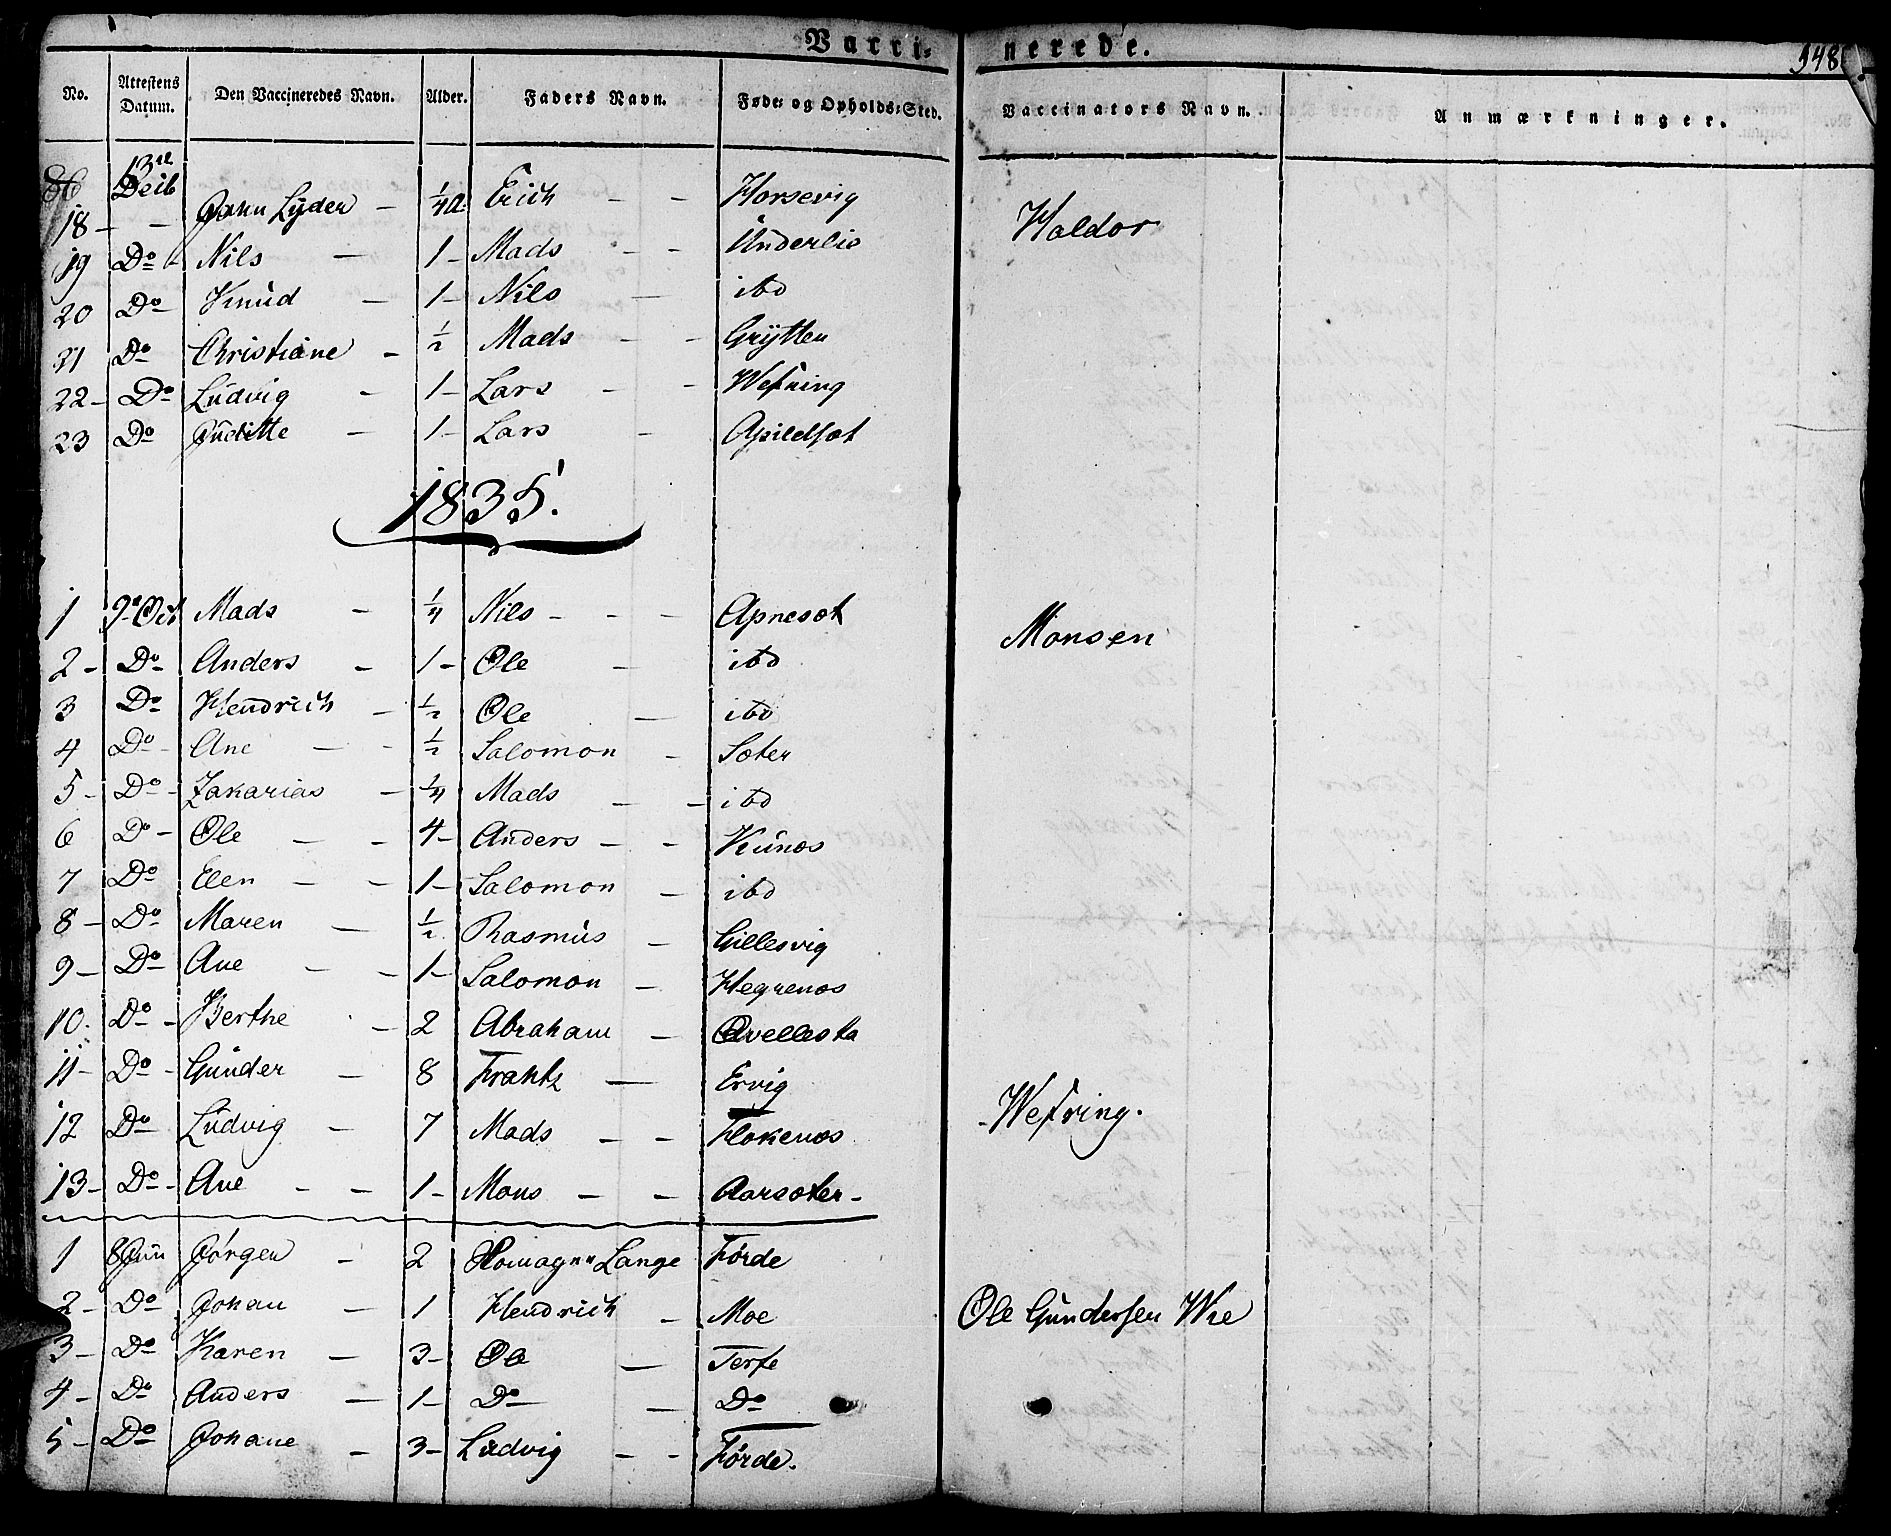 Vacci- nerede. 348
No. Attestens Datum. Den Vaccineredes Navn. Alder. Faders Navn. Føde- og Opholds-Sted. Vaccinators Navn. Anmærkninger.
13de
18 - - John Lyder - 1/4 a Erich - - Horsevig Haldor
19 Do - Nils - 1 - Mads - - Underlis
20 Do - Knud - 1 - Nils - ibd
21 Do Christiane - 1/2 Mads - - Grytten
22 - Do Ludvig - 1 - Lars - - Wefring
23 Do Juditte - 1 - Lars - Apildset
1835.
1 9de Oct Mads - 1/4 Nils - - - Apnesæt Monsen
2 - Do - Anders - 1 - Ole - ibd
3 Do Hendrich - 1/2 Ole - ibd
4 Do - Ane - - 1/2 Salomon - Sæter
5 - Do - Zakarias - 1/4 Mads - - ibd
6 Do - Ole - - 4 - Anders - - Kunæs
7 Do Elen - - 1 - Salomon - ibd
8 - Do - Maren - 1/2 Rasmus - Gillesvig
9 - Do - Ane - - 1 - Salomon - Hegrenæs
10. Do - Berthe - 2 Abraham - Qvellesta
11 - Do - Gunder - 8 Frantz - Ervig
12 Do - Ludvig - 7 Mads - - Flokenæs Wefring.
13 - Do - Ane - - 1 - Mons - - Aarsæter -
1 8 Jun Jørgen - 2 Lange Førde
2 - Do - Johan - 1 Hendrich - Moe Ole Gundersen Wie
3 - Do - Karen - 3 - Ole - Terfe
4 - Do - Anders - 1 - Do - Do
5 - Do Johane - 3 - Ludvig - - Førde.